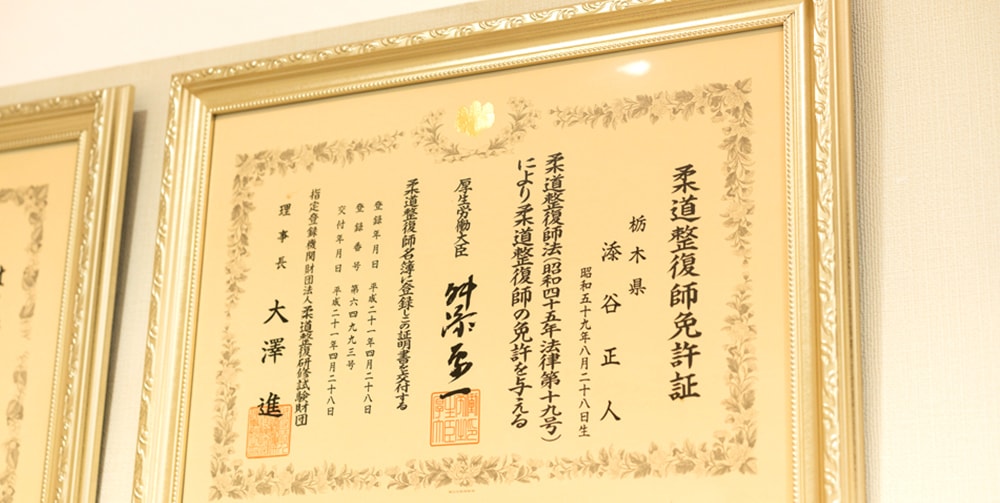 柔道整復師免許証
栃木県
添谷正人
昭和五十九年八月二十八日生
柔道整復師法(昭和四十五年法律第十九号)
により柔道整復師の免許を与える
厚生労働大臣 舛添要一
柔道整復師名簿に登録しこの証明書を交付する
登録年月日 平成二十一年四月二十八日
登録番号 第六四九九三号
交付年月日 平成二十一年四月二十八日
指定登録機関財団法人柔道整復研修試験財団
理事長 大澤進